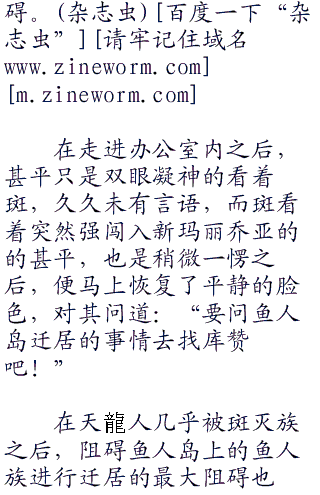 碍。(杂志虫)[百度一下“杂
志虫”][请牢记住域名
www.zineworm.com]
[m.zineworm.com]
在走进办公室内之后，
甚平只是双眼凝神的看着
斑，久久未有言语，而斑看
着突然强闯入新玛丽乔亚的
的甚平，也是稍微一愣之
后，便马上恢复了平静的脸
色，对其问道：“要问鱼人
岛迁居的事情去找库赞
吧！”
在天龍人几乎被斑灭族
之后，阻碍鱼人岛上的鱼人
族进行迁居的最大阻碍也